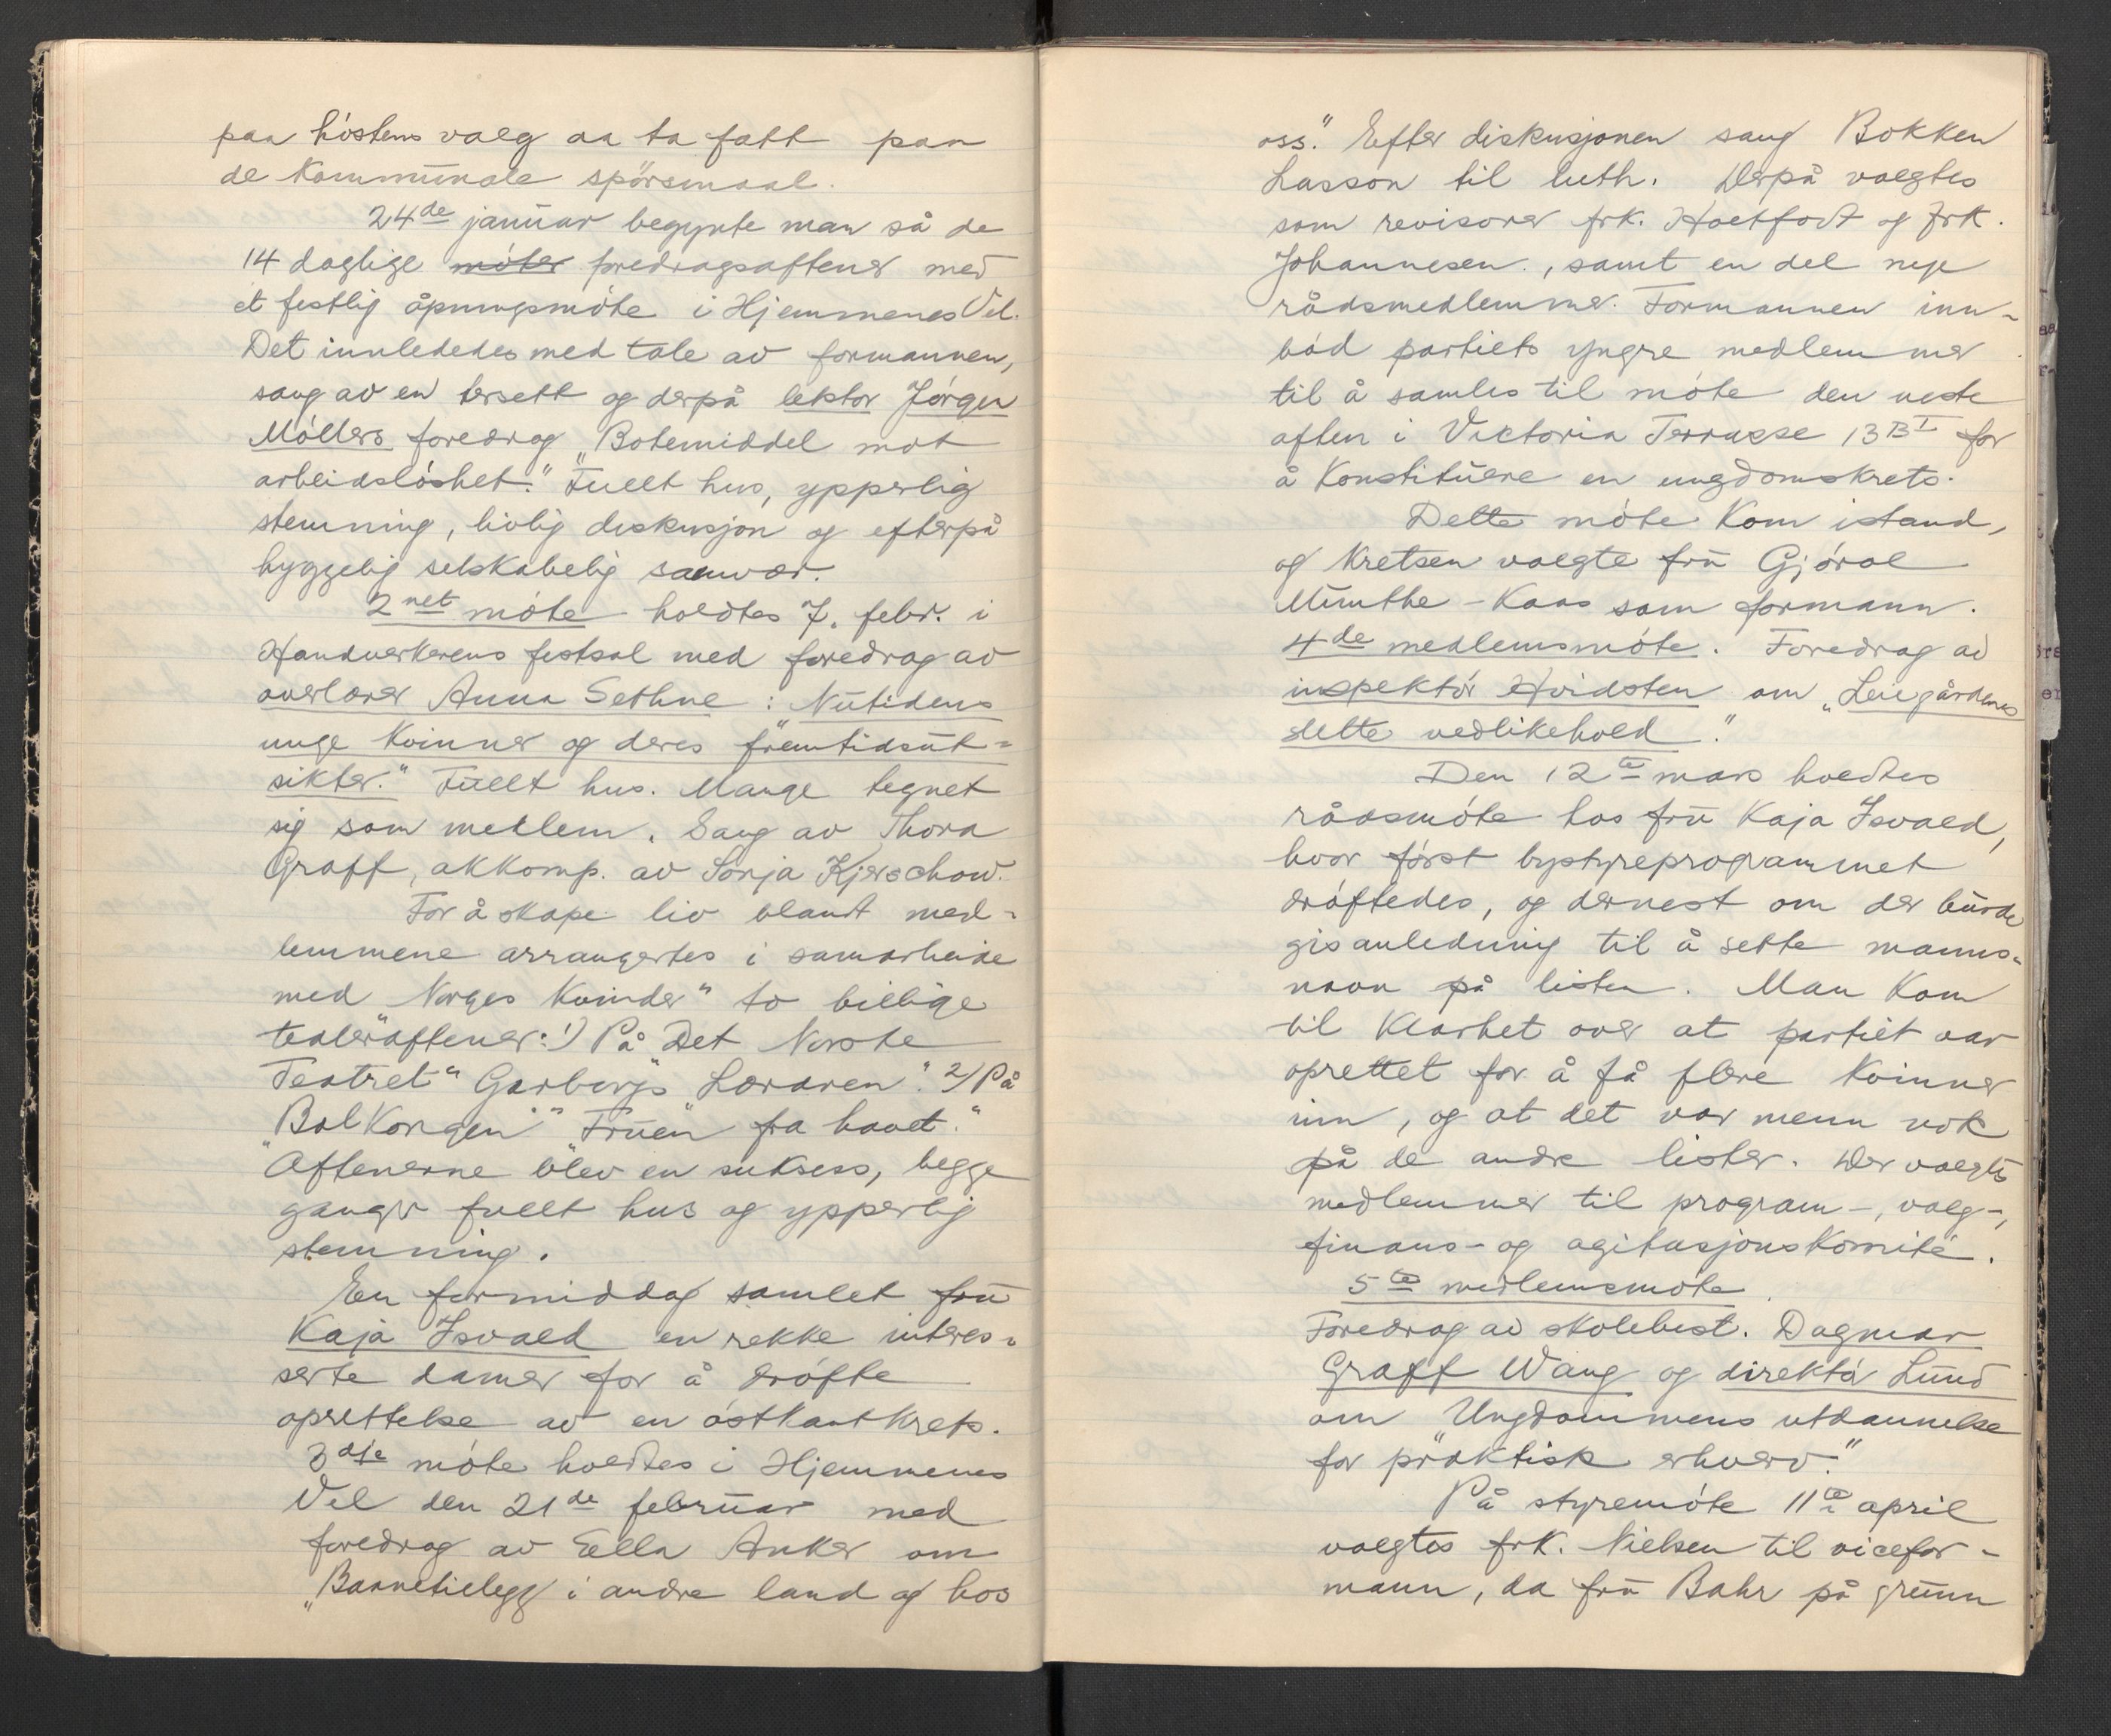 paa höstens valg aa ta fatt paa
de kommunale spörsmaal.
24de januar begynte man så de
14 daglige möter foredragsaftener med
et festlig åpningsmöte i Hjemmenes Vel.
Det innlededes med tale av formannen,
sang av en tersett og derpå lektor Jörgen
Möllers foredrag „Botemiddel mot
arbeidslöshet." Fullt hus, ypperlig
stemning, livlig diskusjon og efterpå
hyggelig selskabelig samvær.
2net möte holdtes 7. febr. i
Handverkerens festsal med foredrag av
overlærer Anna Sethne: „Nutidens
unge kvinner og deres fremtidsut-
sikter." Fullt hus. Mange tegnet
sig som medlem. Sang av Thora
Graff, akkomp. av Sonja Kjerschow.
For å skape liv blandt med-
lemmene arrangertes i samarbeide
med „Norges Kvinder" to billige
teateraftener: 1) På Det Norske
Teatret" Garborgs „Læraren". 2) På
„Balkongen" „Fruen fra havet."
Aftenerne blev en suksess, begge
ganger fullt hus og ypperlig
stemning.
En formiddag samlet fru
Kaja Isvald en rekke interes-
serte damer for å dröfte
oprettelse av en östkantkrets.
3dje möte holdtes i Hjemmenes
Vel den 21de februar med
foredrag av Ella Anker om
„Barnetillegg i andre land og hos
oss." Efter diskusjonen sang Bokken
Lasson til luth. Derpå valgtes
som revisorer frk. Hoelfodt og frk.
Johannesen, samt en del nye
rådsmedlemmer. Formannen inn-
böd partiets yngre medlemmer
til å samles til möte den neste
aften i Victoria Terrasse 13 B I for
å konstituere en ungdomskrets.
Dette möte kom istand,
og kretsen valgte fru Gjöral
Munthe-Kaas som formann.
4de medlemsmöte. Foredrag av
inspektör Hvidsten om „Leiegårdenes
slette vedlikehold."
Den 12te mars holdtes
rådsmöte hos fru Kaja Isvald,
hvor först bystyreprogrammet
dröftedes, og dernest om der burde
gis anledning til å sette manns-
navn på listen. Man kom
til klarhet over at partiet var
oprettet for å få flere kvinner
inn, og at det var menn nok
på de andre lister. Der valgtes
medlemmer til program-, valg-,
finans- og agitasjonskomité.
5te medlemsmöte.
Foredrag av skolebest. Dagmar
Graff Wang og direktör Lund
om „Ungdommens utdannelse
for praktisk erhverv."
På styremöte 11te april
valgtes frk. Nielsen til vicefor-
mann, da fru Bahr på grunn